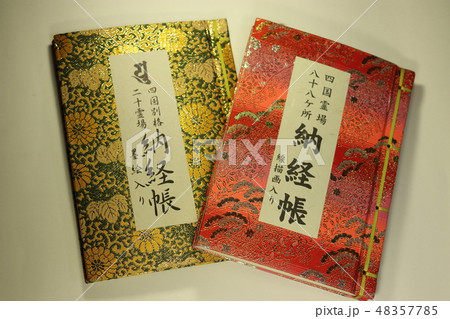 四国別格
二十霊場
納経帳
墨絵入り
四国霊場
八十八ヶ所
納経帳
絵描画入り
pixta.jp - 48357785